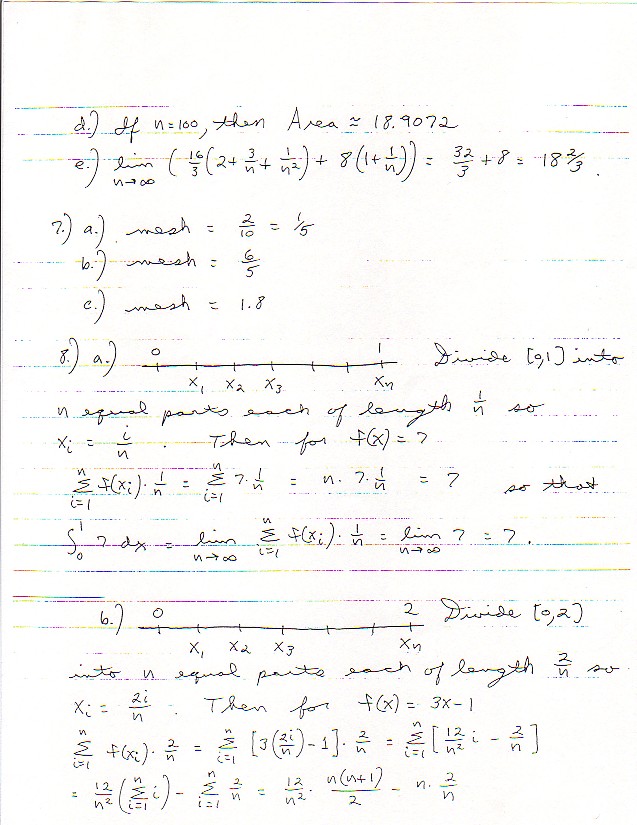 d.) If n=100, then Area ≈ 18.9072
e.) lim n→∞ ( 16/3 (2 + 3/n + 1/n²) + 8(1 + 1/n) ) = 32/3 + 8 = 18 2/3.
7.) a.) mesh = 2/10 = 1/5
b.) mesh = 6/5
c.) mesh = 1.8
8.) a.) 0 1 Divide [0,1] into
x₁ x₂ x₃ xₙ
n equal parts each of length 1/n so
xᵢ = i/n . Then for f(x) = 7
∑ᵢ₌₁ⁿ f(xᵢ)· 1/n = ∑ᵢ₌₁ⁿ 7· 1/n = n· 7· 1/n = 7 so that
∫₀¹ 7 dx = lim n→∞ ∑ᵢ₌₁ⁿ f(xᵢ)· 1/n = lim n→∞ 7 = 7.
b.) 0 2 Divide [0,2]
x₁ x₂ x₃ xₙ
into n equal parts each of length 2/n so
xᵢ = 2i/n . Then for f(x) = 3x-1
∑ᵢ₌₁ⁿ f(xᵢ)· 2/n = ∑ᵢ₌₁ⁿ [3(2i/n) - 1]· 2/n = ∑ᵢ₌₁ⁿ [12/n² i - 2/n]
= 12/n² (∑ᵢ₌₁ⁿ i) - ∑ᵢ₌₁ⁿ 2/n = 12/n² · n(n+1)/2 - n· 2/n